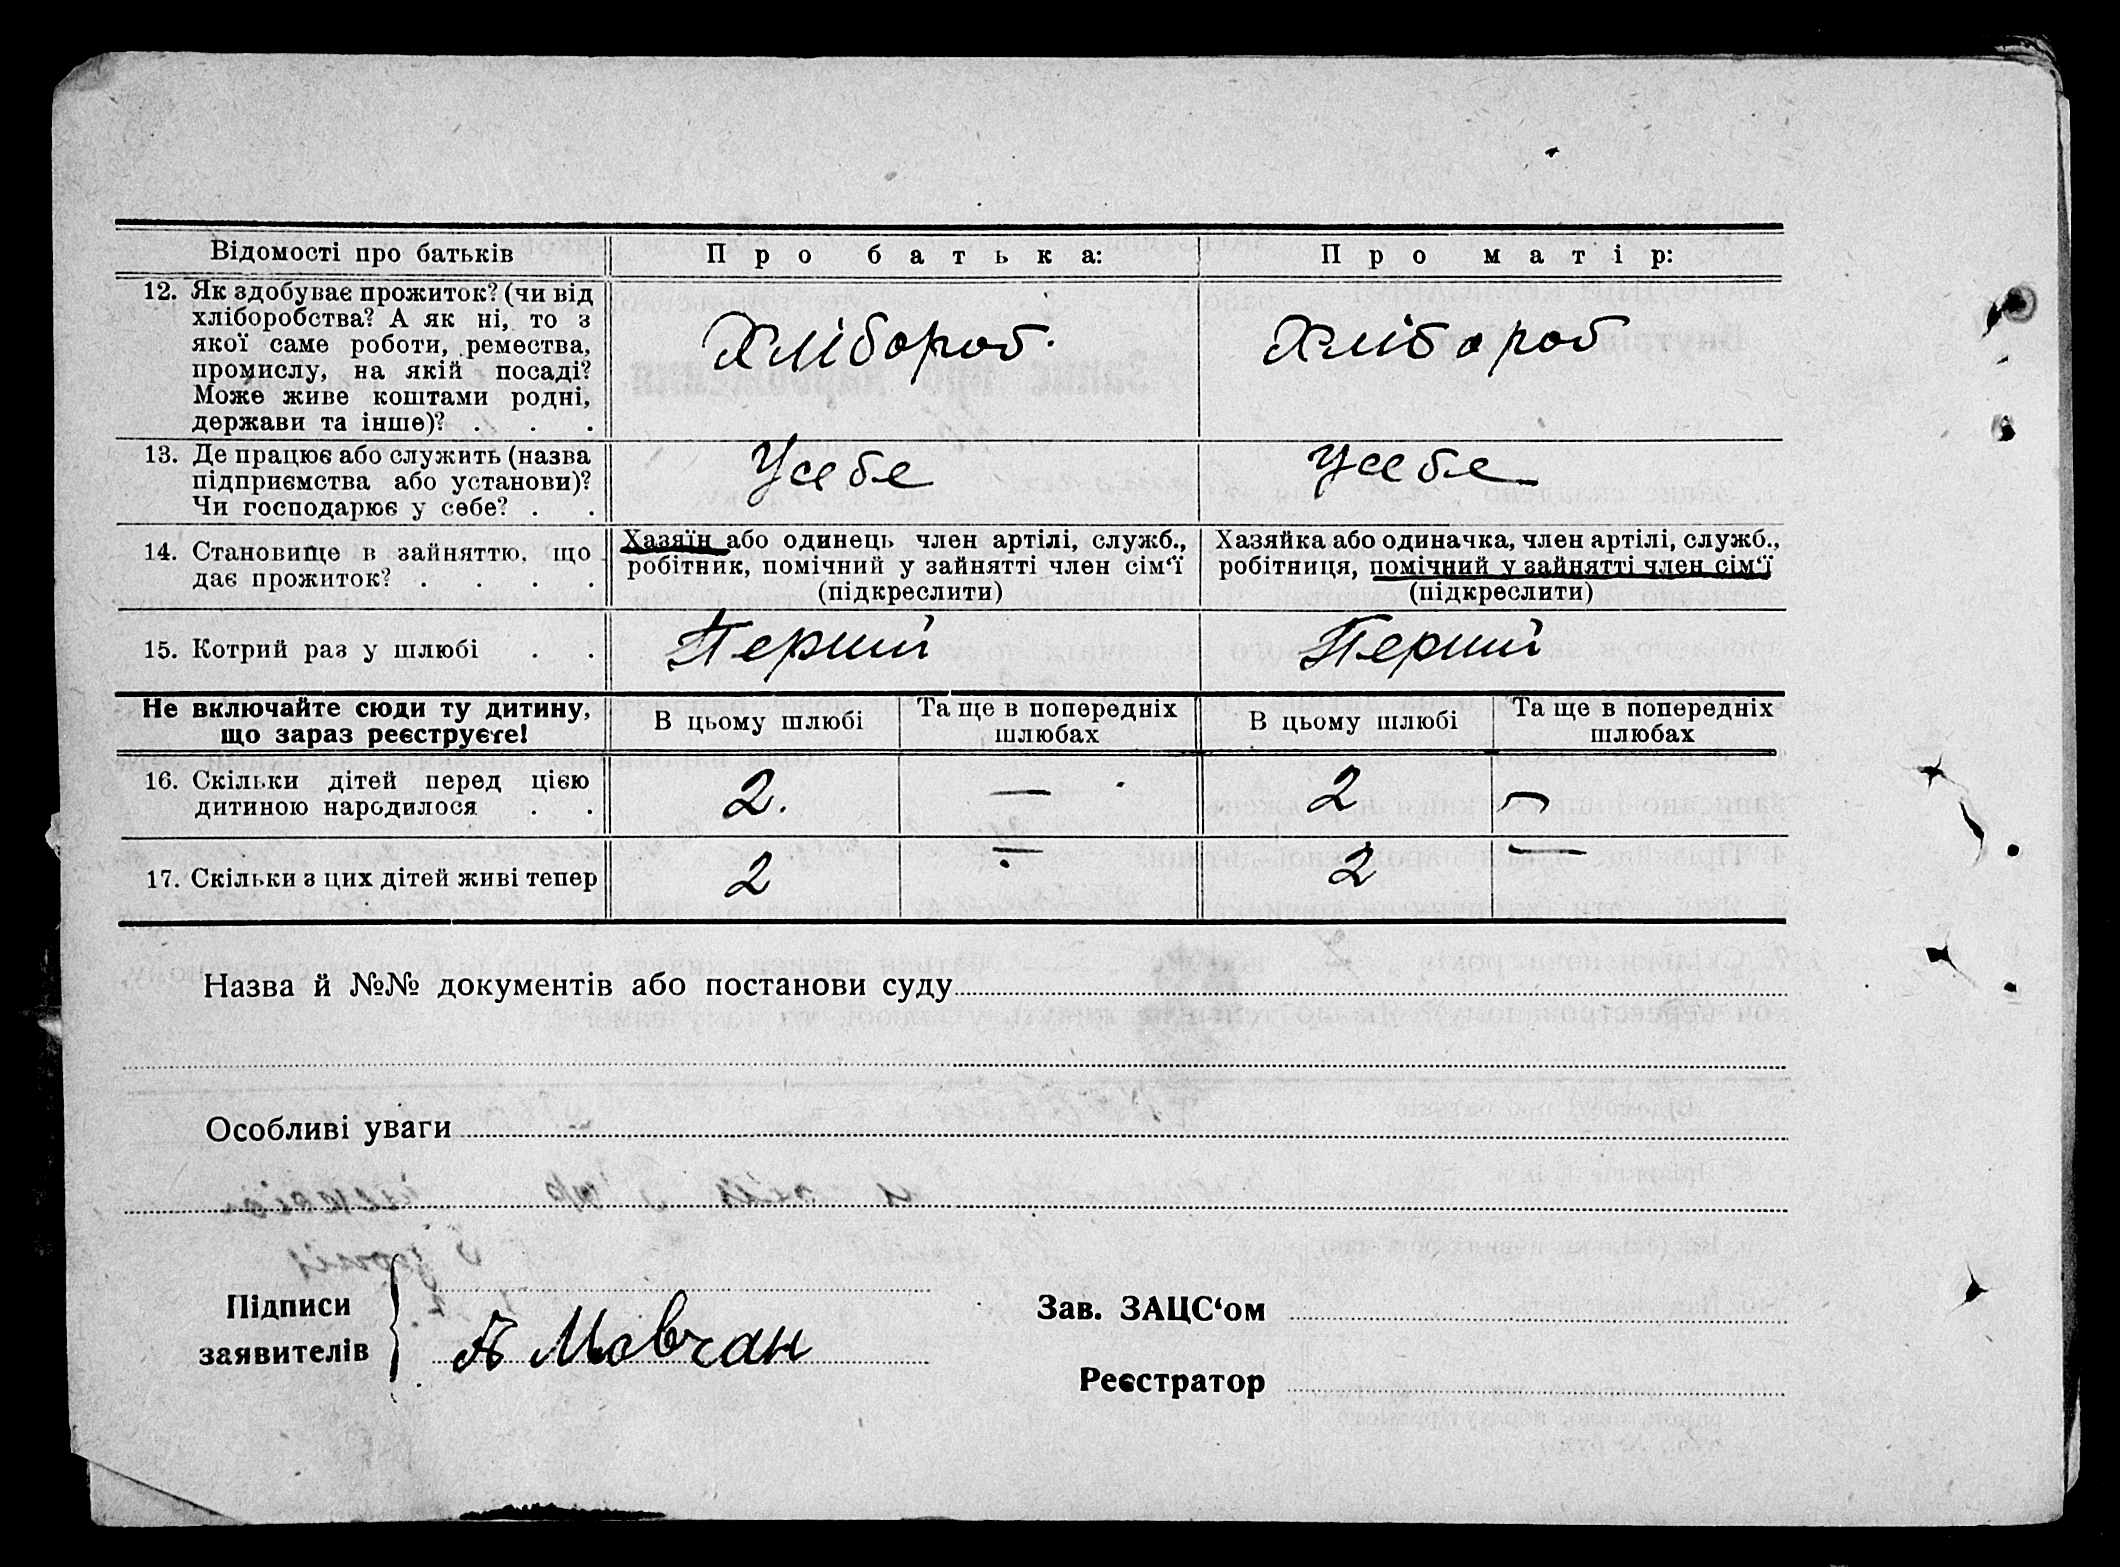 Відомості про батьків Про батька: Про матір:
12. Як здобуває прожиток? (чи від
хліборобства? А як ні, то з
якої саме роботи, ремества,
промислу, на якій посаді?
Може живе коштами родні,
держави та інше)? . . .
Хлібороб. Хлібороб
13. Де працює або служить (назва
підприємства або установи)?
Чи господарює у себе? . .
Усебе Усебе
14. Становище в зайняттю, що
дає прожиток? . . . .
Хазяїн або одинець член артілі, служб.,
робітник, помічний у зайнятті член сім‘ї
(підкреслити)
Хазяйка або одиначка, член артілі, служб.,
робітниця, помічний у зайнятті член сім‘ї
(підкреслити)
15. Котрий раз у шлюбі . . Перший Перший
Не включайте сюди ту дитину,
що зараз реєструєте!
В цьому шлюбі
Та ще в попередніх
шлюбах
В цьому шлюбі
Та ще в попередніх
шлюбах
16. Скільки дітей перед цією
дитиною народилося . .
2. — 2 —
17. Скільки з цих дітей живі тепер 2 — 2 —
Назва й №№ документів або постанови суду
Особливі уваги
Підписи
заявителів
Мовчан
Зав. ЗАЦС‘ом
Реєстратор